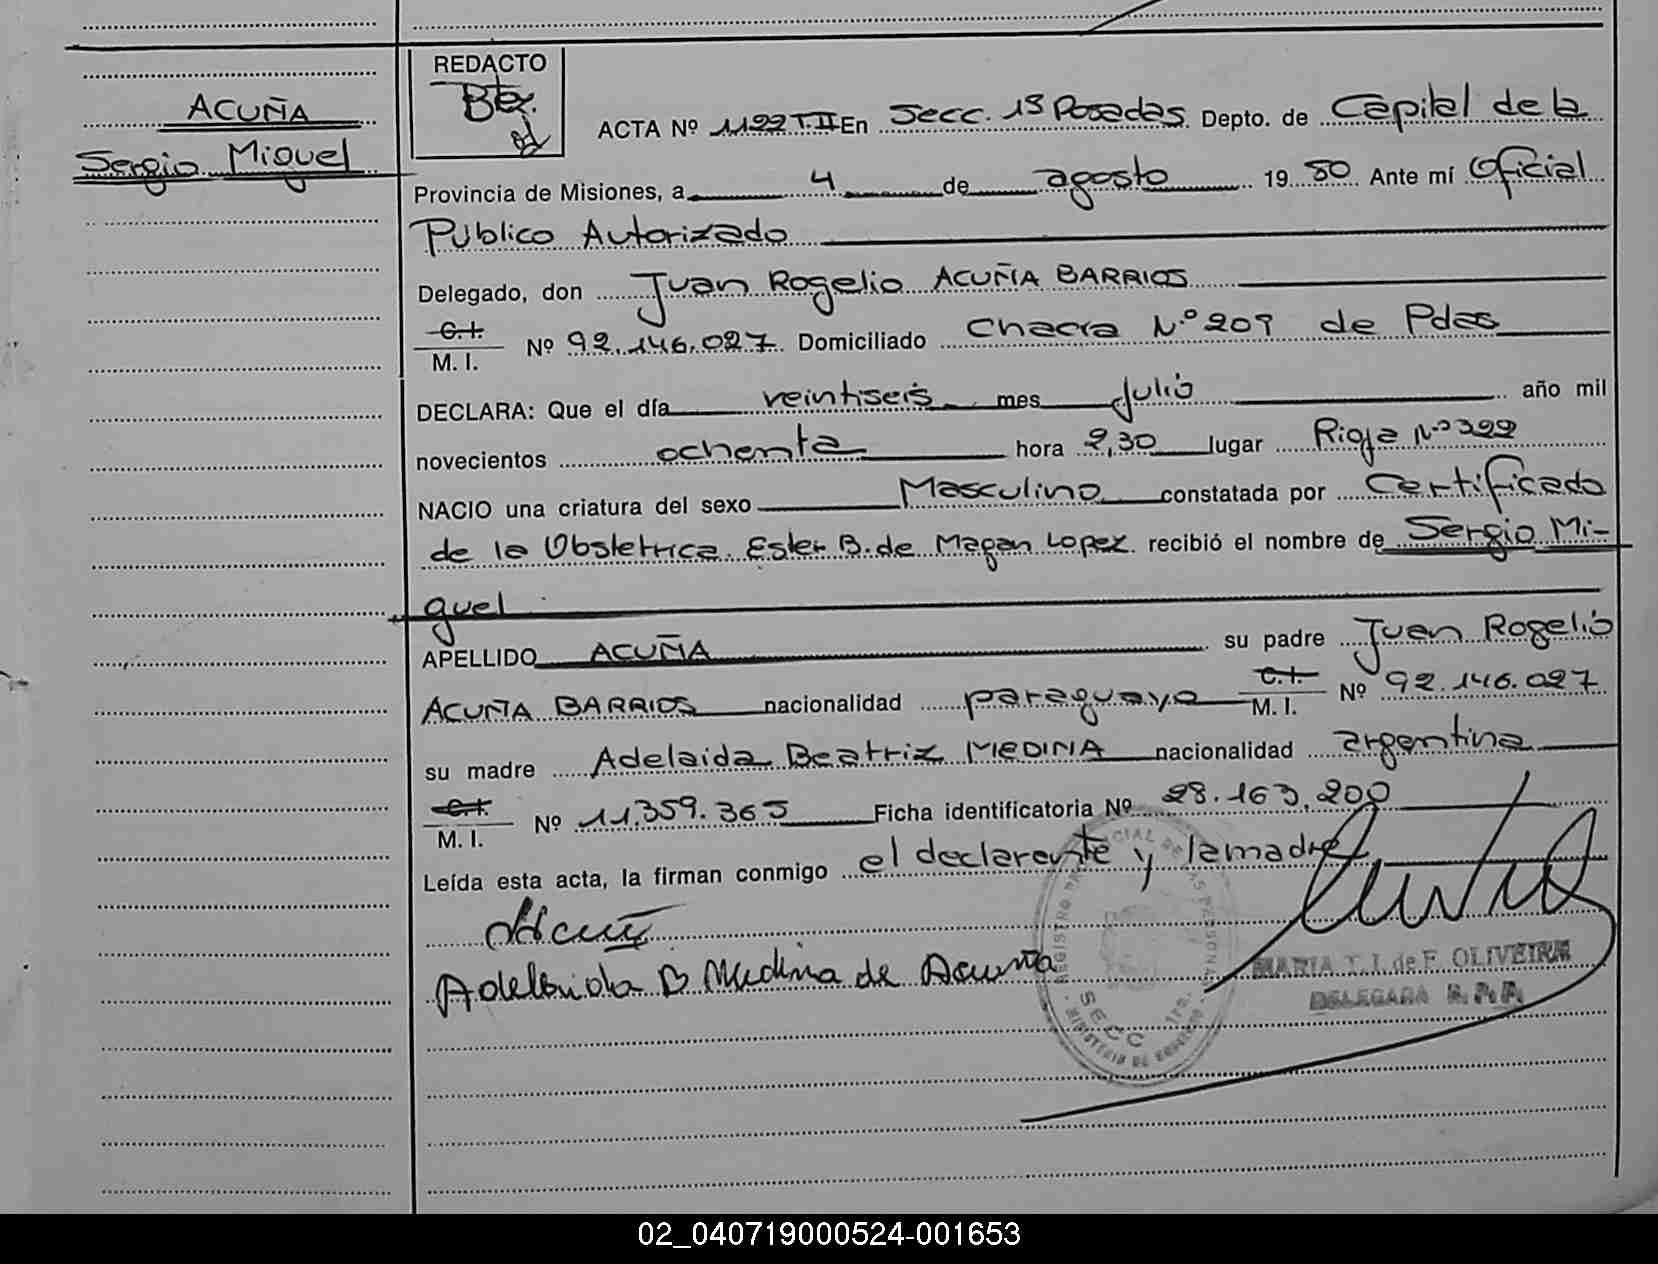 ACUÑA
Sergio Miguel
REDACTO
ACTA Nº 1122 T.II En Secc. 1ª Posadas Depto. de Capital de la
Provincia de Misiones, a 4 de agosto 19 80 Ante mí Oficial
Público Autorizado
Delegado, don Juan Rogelio ACUÑA BARRIOS
C.I.
M. I. Nº 92.146.027 Domiciliado Chacra Nº 209 de Pdas
DECLARA: Que el día veintiseis mes Julio año mil
novecientos ochenta hora 2,30 lugar Rioja Nº 322
NACIO una criatura del sexo Masculino constatada por Certificado
de la Obstetrica Ester B. de Magan Lopez recibió el nombre de Sergio Mi-
guel
APELLIDO ACUÑA su padre Juan Rogelio
ACUÑA BARRIOS nacionalidad paraguaya C.I. M. I. Nº 92.146.027
su madre Adelaida Beatriz MEDINA nacionalidad argentina
C.I.
M. I. Nº 11.359.365 Ficha identificatoria Nº 28.163.200
Leída esta acta, la firman conmigo el declarante y la madre
Adelaida B Medina de Acuña
MARIA T. I. de F. OLIVEIRA
DELEGADA R. P. P.
SECC 1ra.
02_040719000524-001653